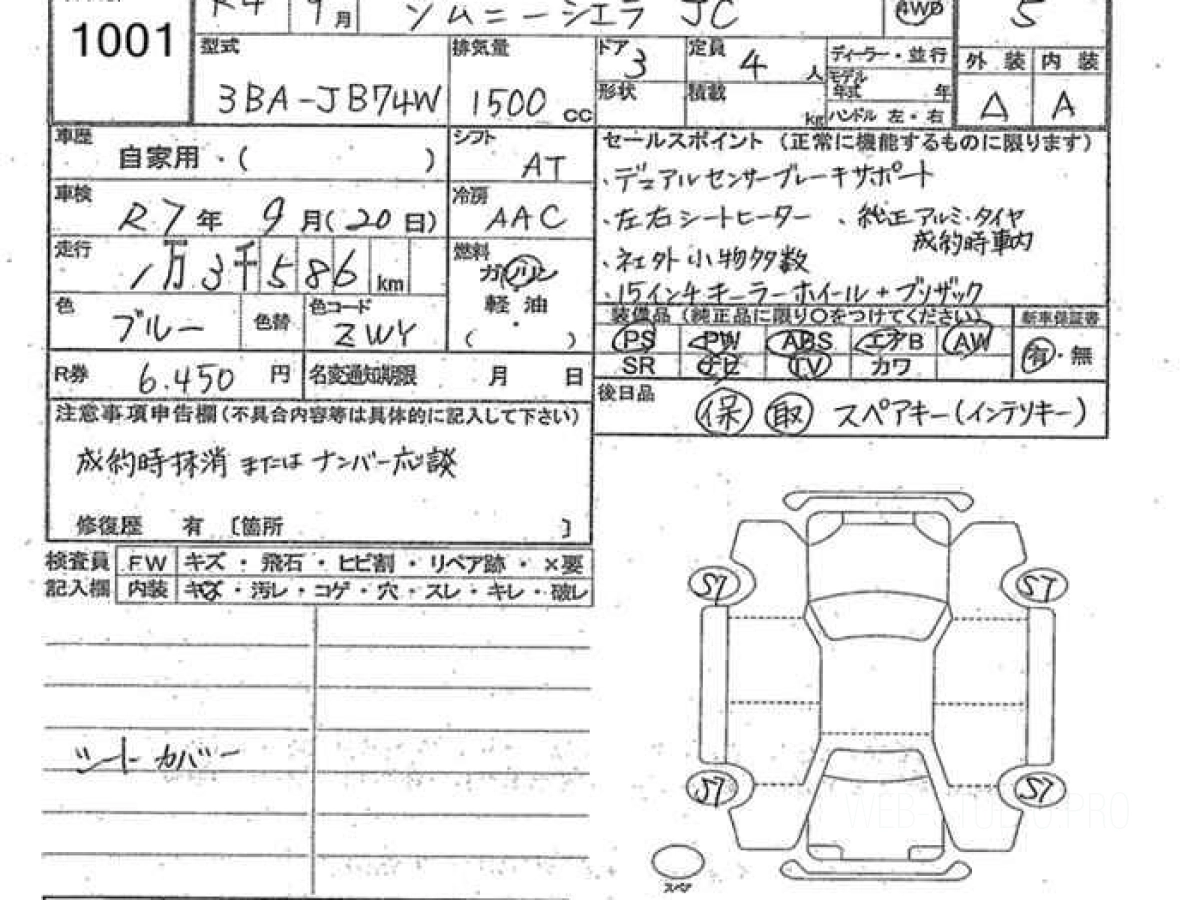 1001
R4 9月 ジムニーシエラ JC AWD 5
型式 3BA-JB74W
排気量 1500 cc
ドア 3
形状
定員 4 人
積載 kg
ディーラー・並行
モデル年式 年
ハンドル 左・右
外装 内装
△ A
車歴 自家用・( )
シフト AT
車検 R7年 9月(20日)
冷房 AAC
走行 1万3千586 km
燃料 ガソリン
軽油
( )
色 ブルー
色替
色コード ZWY
R券 6.450 円
名変通知期限 月 日
セールスポイント (正常に機能するものに限ります)
・デュアルセンサーブレーキサポート
・左右シートヒーター ・純正アルミ・タイヤ
成約時車内
・社外小物多数
・15インチキーラーホイール+ブリザック
装備品 (純正品に限り〇をつけてください)
PS PW ABS エアB AW
SR ナビ TV カワ
新車保証書
有・無
後日品 保 取 スペアキー(インテリキー)
注意事項申告欄(不具合内容等は具体的に記入して下さい)
成約時抹消またはナンバー応談
修復歴 有 〔箇所 〕
検査員記入欄
FW キズ・飛石・ヒビ割・リペア跡・×要
内装 キズ・汚レ・コゲ・穴・スレ・キレ・破レ
シートカバー
S7 S7
S7 S7
スペア
WEB-STUDIO.PRO